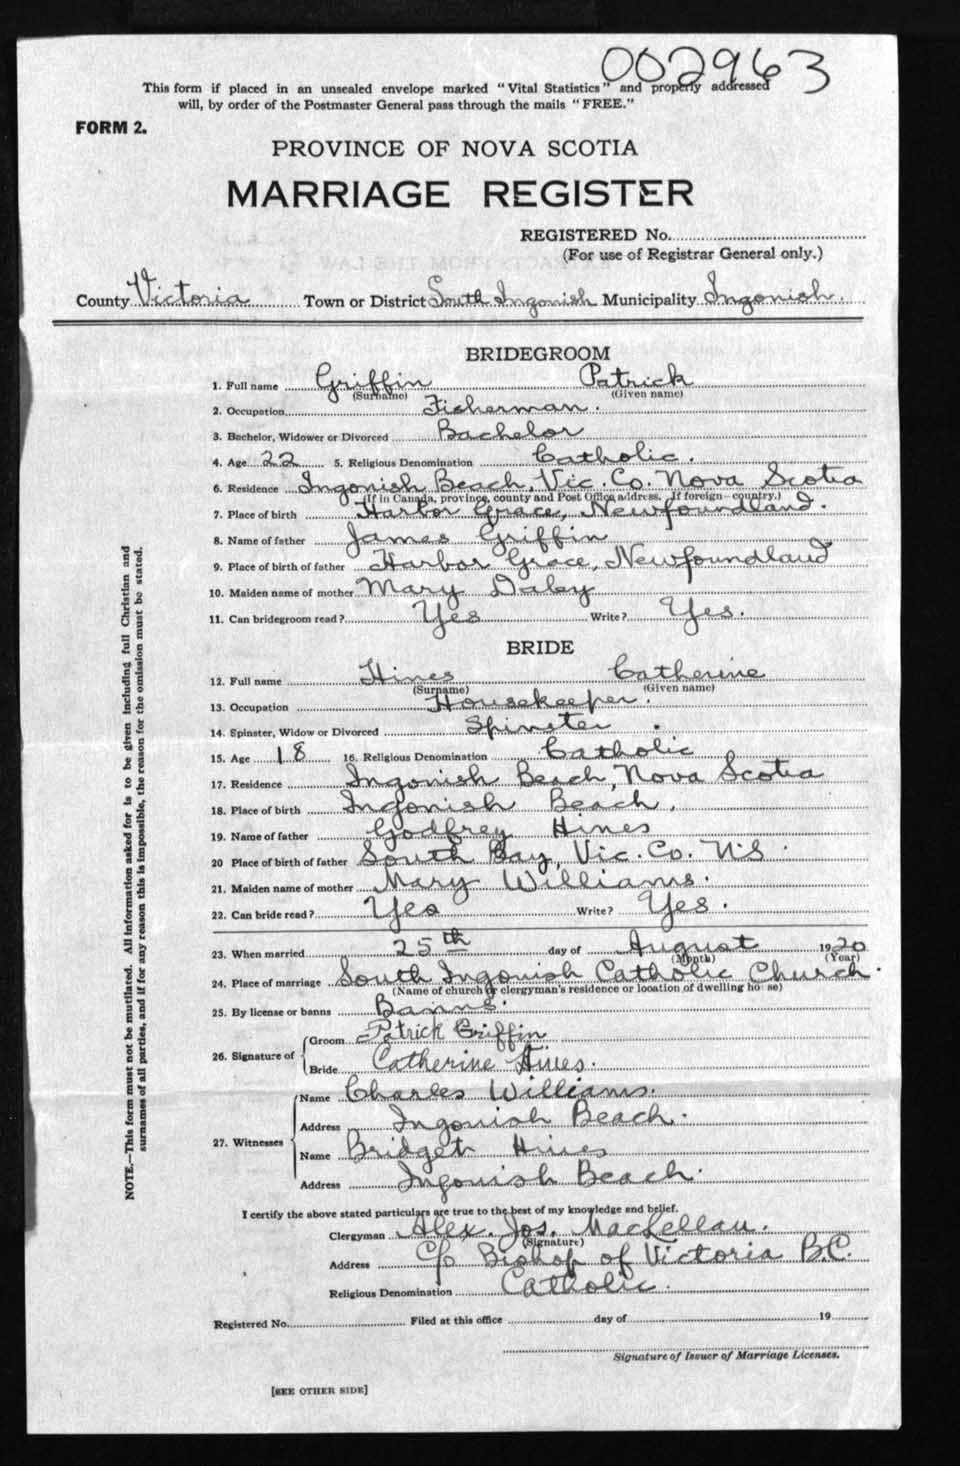 002963
This form if placed in an unsealed envelope marked "Vital Statistics" and properly addressed
will, by order of the Postmaster General pass through the mails "FREE."
FORM 2.
PROVINCE OF NOVA SCOTIA
MARRIAGE REGISTER
REGISTERED No.
(For use of Registrar General only.)
County Victoria Town or District South Ingonish Municipality Ingonish.
BRIDEGROOM
1. Full name Griffin Patrick
(Surname) (Given name)
2. Occupation Fisherman.
3. Bachelor, Widower or Divorced Bachelor
4. Age 22 5. Religious Denomination Catholic.
6. Residence Ingonish Beach, Vic. Co. Nova Scotia
(If in Canada, province, county and Post Office address. If foreign—country.)
7. Place of birth Harbor Grace, Newfoundland.
8. Name of father James Griffin
9. Place of birth of father Harbor Grace, Newfoundland
10. Maiden name of mother Mary Daley
11. Can bridegroom read? Yes Write? Yes.
BRIDE
12. Full name Hines Catherine
(Surname) (Given name)
13. Occupation Housekeeper.
14. Spinster, Widow or Divorced Spinster.
15. Age 18 16. Religious Denomination Catholic
17. Residence Ingonish Beach, Nova Scotia
18. Place of birth Ingonish Beach.
19. Name of father Godfrey Hines
20 Place of birth of father South Bay, Vic. Co. N.S.
21. Maiden name of mother Mary Williams.
22. Can bride read? Yes Write? Yes.
23. When married 25th day of August 1920
(Month) (Year)
24. Place of marriage South Ingonish Catholic Church.
(Name of church or clergyman's residence or location of dwelling house)
25. By license or banns Banns.
26. Signature of Groom Patrick Griffin
Bride Catherine Hines.
27. Witnesses Name Charles Williams.
Address Ingonish Beach.
Name Bridget Hines
Address Ingonish Beach.
I certify the above stated particulars are true to the best of my knowledge and belief.
Clergyman Alex. Jos. MacLellan.
(Signature)
Address c/o Bishop of Victoria B.C.
Religious Denomination Catholic.
Registered No. Filed at this office day of 19
Signature of Issuer of Marriage Licenses.
[SEE OTHER SIDE]
NOTE.—This form must not be mutilated. All information asked for is to be given including full Christian and
surnames of all parties, and if for any reason this is impossible, the reason for the omission must be stated.